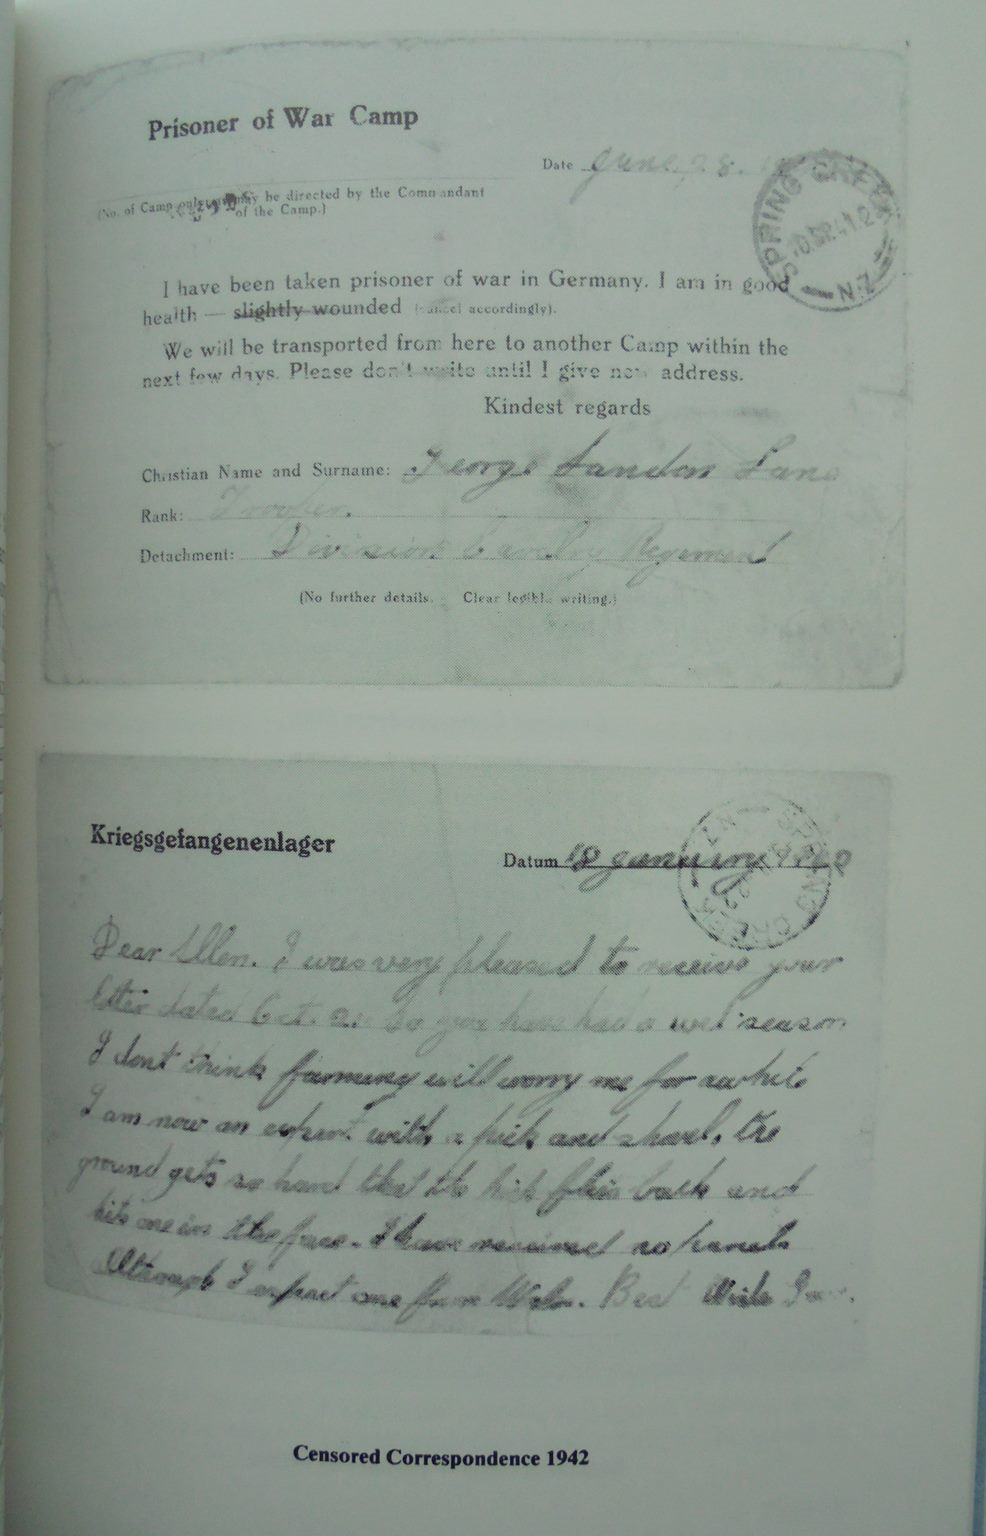 Prisoner of War Camp
Date June 28.
SPRING CREEK
N.Z.
(No. of Camp only may be directed by the Commandant
of the Camp.)
I have been taken prisoner of war in Germany. I am in good
health — slightly wounded (cancel accordingly).
We will be transported from here to another Camp within the
next few days. Please don't write until I give new address.
Kindest regards
Christian Name and Surname: George Landon Lane
Rank: Trooper.
Detachment: Division Cavalry Regiment
(No further details. Clear legible writing.)
Kriegsgefangenenlager
Datum 18 January
SPRING CREEK
N.Z.
Dear Ellen. I was very pleased to receive your
letter dated Oct. So you have had a wet season
I dont think farming will worry me for awhile
I am now an expert with a pick and shovel, the
ground gets so hard that the pick flies back and
hits me in the face. I have received no parcels
Although I expect one from Best
Censored Correspondence 1942